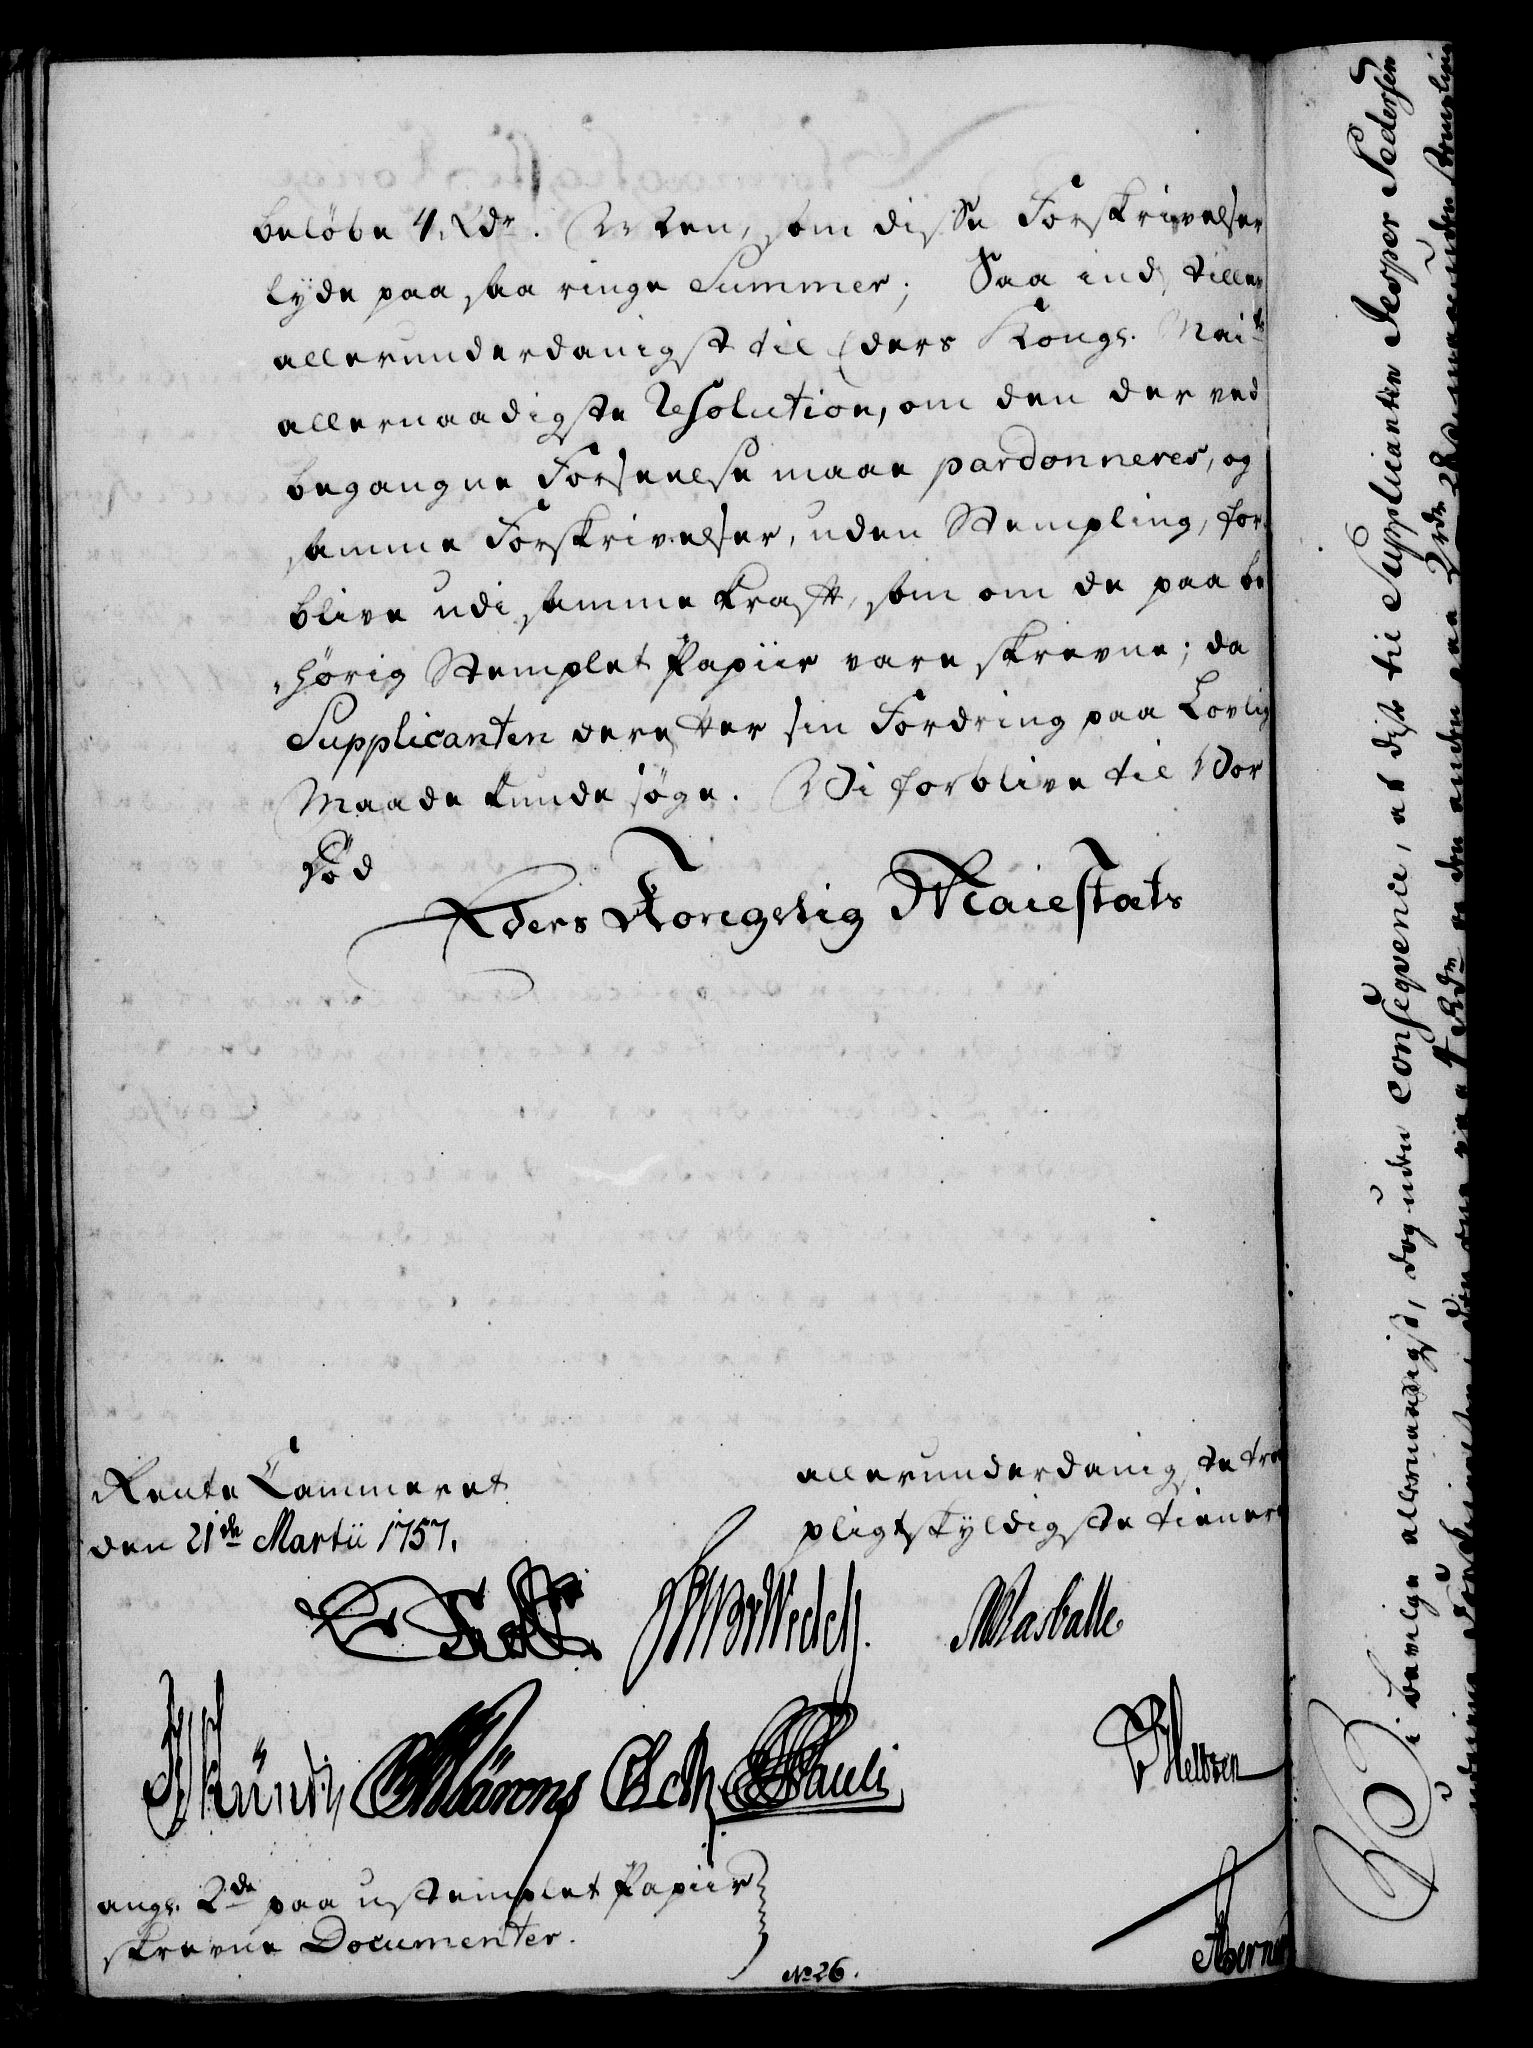 beløbe 4. Rdr. Men, som disse Forskrivelser
lyde paa saa ringe Summer; Saa ind„ stilles
allerunderdanigst til Eders Kongl. Maits
allernaadigste Resolution, om den der ved
begangne Forseelse maae pardonneres, og
samme Forskrivelser, uden Stempling, for„
blive udi samme Kraft, som om de paa be„
„hørig Stemplet Papiir vare skrevne; da
Supplicanten derefter sin Fordring paa Lovlig
Maade kunde søge. Vi forblive til Vor
Død
Eders Kongelig Maiestæts
Rente Cammeret
den 21de Martii 1757.
allerunderdanigste troe
pligtskyldigste tienere
Rasballe
Pauli
angl. 2de paa ustemplet Papiir
skrevne Documenter.
No 26.
Vi bevilge allernaadigst, dog uden Conseqvence, at disse til Supplicanten Jesper Pedersen